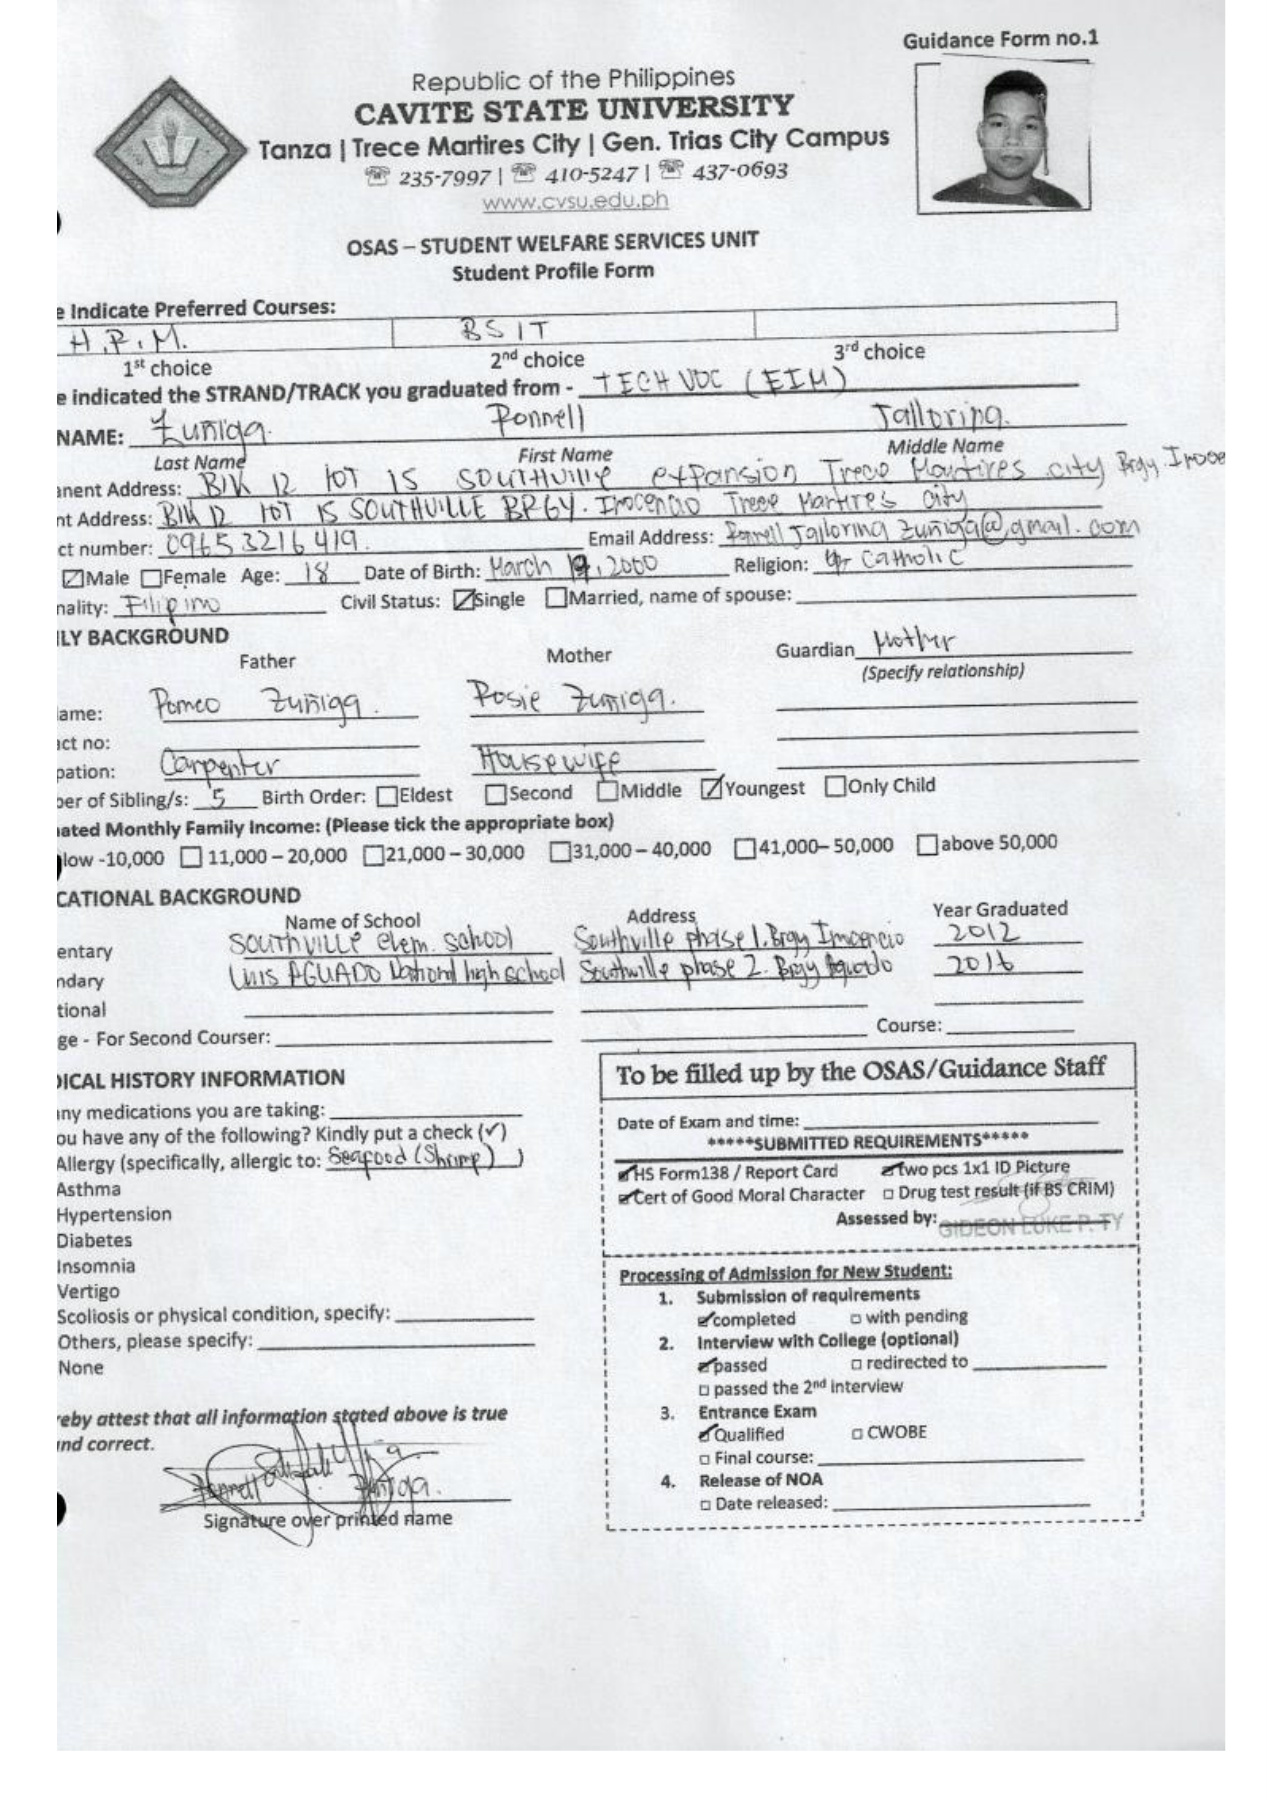 Guidance Form no.1
Republic of the Philippines
CAVITE STATE UNIVERSITY
Tanza | Trece Martires City | Gen. Trias City Campus
☏ 235-7997 | ☏ 410-5247 | ☏ 437-0693
www.cvsu.edu.ph
OSAS – STUDENT WELFARE SERVICES UNIT
Student Profile Form
e Indicate Preferred Courses:
H.R.M. BSIT
1st choice 2nd choice 3rd choice
e indicated the STRAND/TRACK you graduated from - TECH VOC (EIM)
NAME: Zuñiga. Ronnell Jalloring.
Last Name First Name Middle Name
anent Address: Blk 12 lot 15 SOUTHVILLE expansion Trece Martires city Brgy.
nt Address: Blk 12 lot 15 SOUTHVILLE BRGY. Inocencio Trece Martires City
ct number: 09653216419. Email Address:
☑Male ☐Female Age: 18 Date of Birth: March 2000 Religion: Catholic
nality: Filipino Civil Status: ☑Single ☐Married, name of spouse:
LY BACKGROUND
Father Mother Guardian Mother
(Specify relationship)
ame: Romeo Zuñiga. Rosie Zuñiga.
act no:
pation: Carpenter Housewife
ber of Sibling/s: 5 Birth Order: ☐Eldest ☐Second ☐Middle ☑Youngest ☐Only Child
ated Monthly Family Income: (Please tick the appropriate box)
low -10,000 ☐ 11,000 – 20,000 ☐21,000 – 30,000 ☐31,000 – 40,000 ☐41,000– 50,000 ☐above 50,000
CATIONAL BACKGROUND
Name of School Address Year Graduated
entary SOUTHVILLE elem. school Southville phase 1. Brgy Inocencio 2012
ndary LUIS AGUADO National high school Southville phase 2. Brgy Aguado 2016
tional
ge - For Second Courser: Course:
DICAL HISTORY INFORMATION
any medications you are taking:
ou have any of the following? Kindly put a check (✓)
Allergy (specifically, allergic to: Seafood (Shrimp) )
Asthma
Hypertension
Diabetes
Insomnia
Vertigo
Scoliosis or physical condition, specify:
Others, please specify:
None
reby attest that all information stated above is true
and correct.
Ronnell Zuñiga.
Signature over printed name
To be filled up by the OSAS/Guidance Staff
Date of Exam and time:
*****SUBMITTED REQUIREMENTS*****
☑HS Form138 / Report Card ☑two pcs 1x1 ID Picture
☑Cert of Good Moral Character ☐ Drug test result (if BS CRIM)
Assessed by: GIDEON LUKE P. TY
Processing of Admission for New Student:
1. Submission of requirements
☑completed ☐ with pending
2. Interview with College (optional)
☑passed ☐ redirected to
☐ passed the 2nd interview
3. Entrance Exam
☑Qualified ☐ CWOBE
☐ Final course:
4. Release of NOA
☐ Date released: